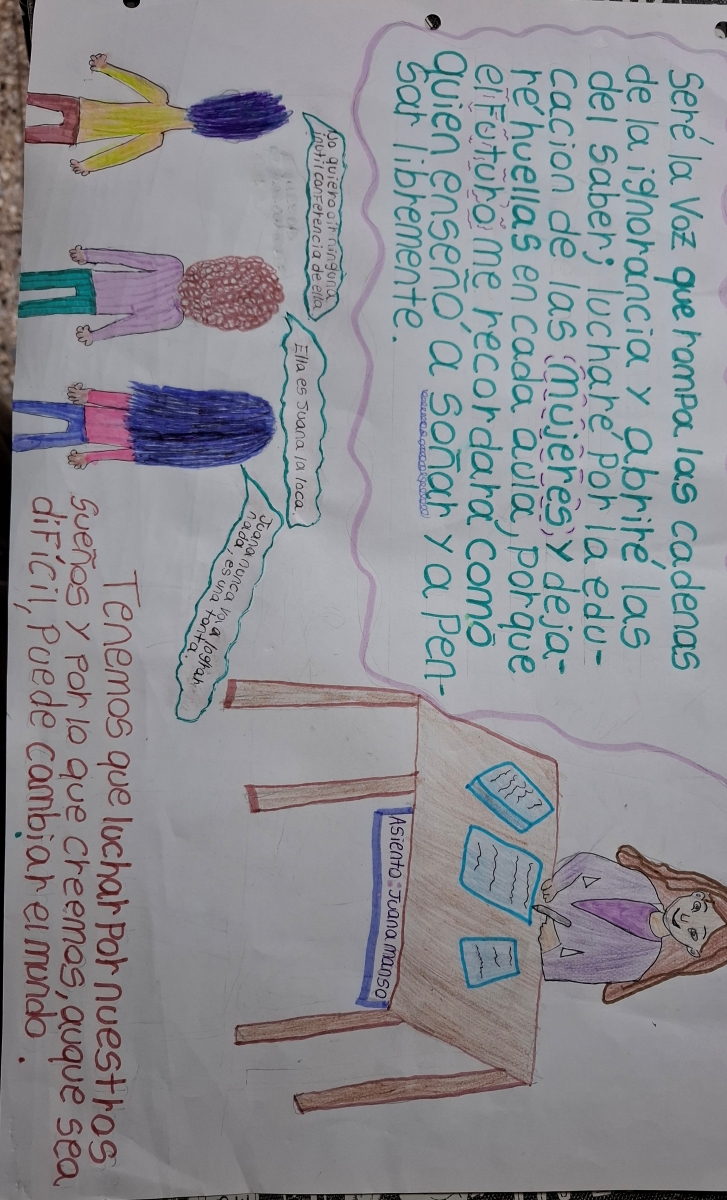 Seré la Voz que rompa las cadenas
de la ignorancia y abriré las
del saber; lucharé por la edu-
cacion de las (mujeres) y deja-
ré huellas en cada aula, porque
el futuro me recordara como
quien enseñó a soñar y a pen-
sar libremente.
No quiero oir ninguna
inutil conferencia de ella
Ella es Juana la loca.
Juana nunca va a lograr
nada, es una tonta.
Asiento: Juana manso
Tenemos que luchar por nuestros
sueños y por lo que creemos, auque sea
difícil, puede cambiar el mundo.